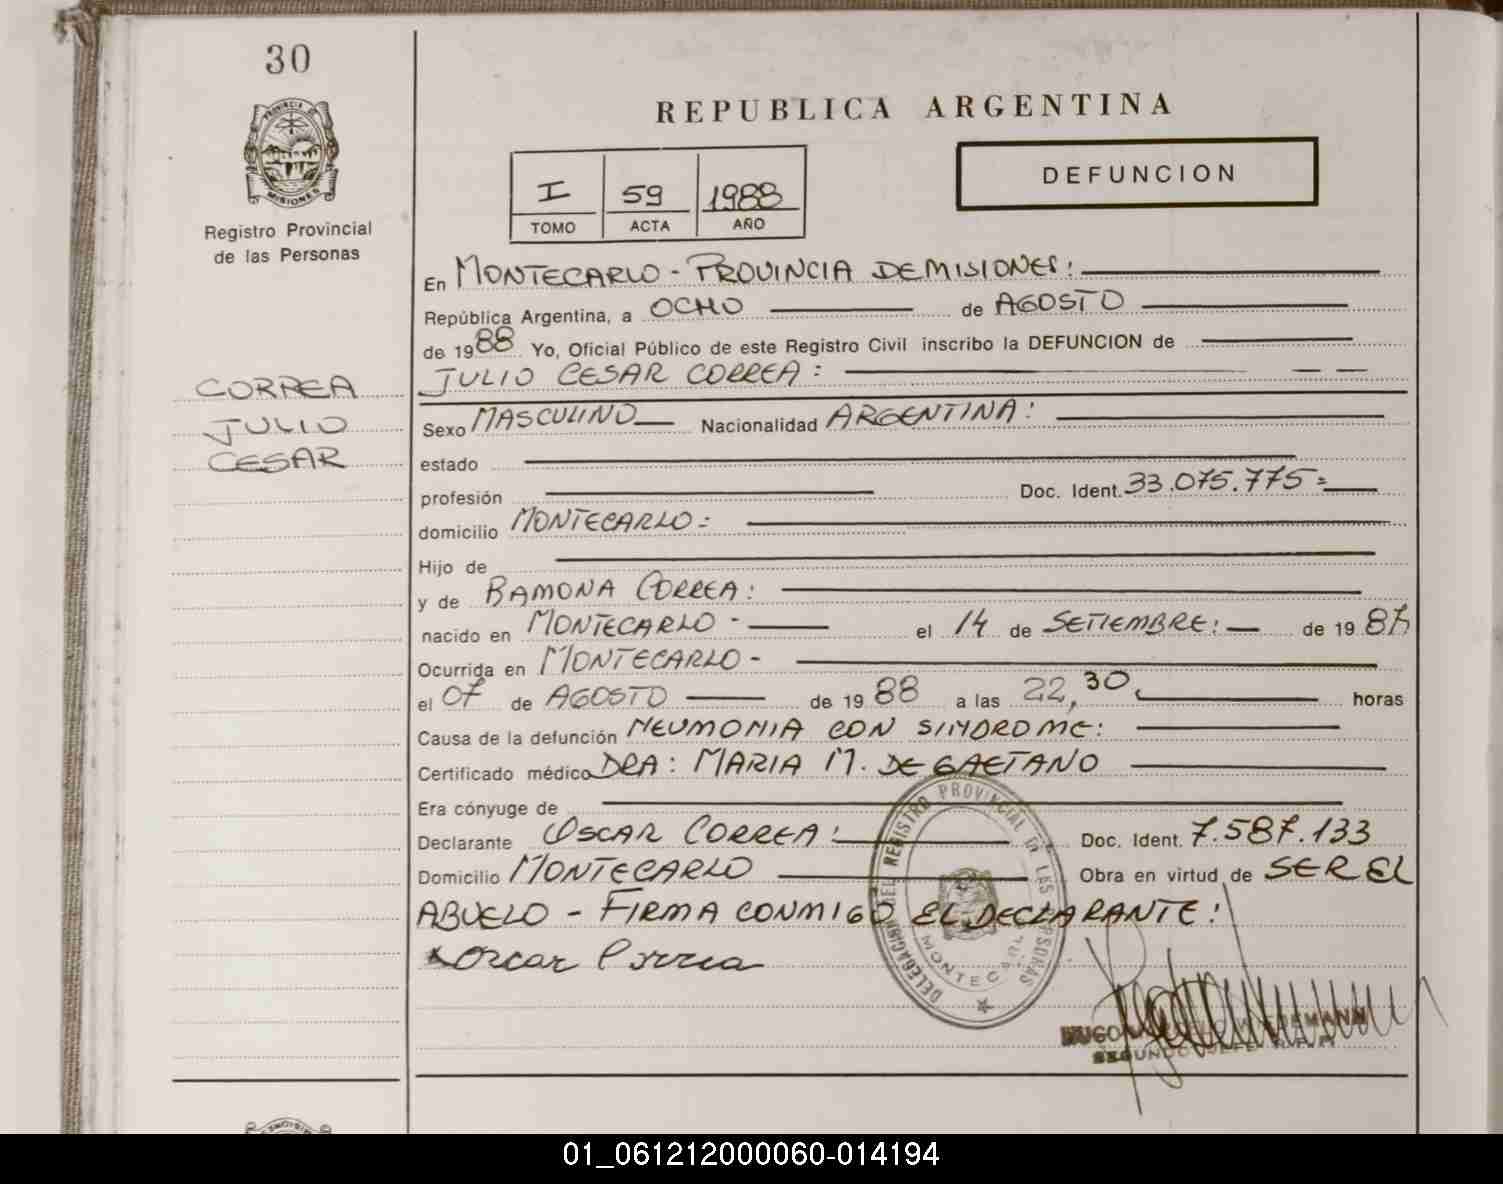 30
PROVINCIA DE
MISIONES
Registro Provincial
de las Personas
CORREA
JULIO
CESAR
REPUBLICA ARGENTINA
DEFUNCION
I 59 1988
TOMO ACTA AÑO
En MONTECARLO - PROVINCIA DE MISIONES:
República Argentina, a OCHO de AGOSTO
de 1988 Yo, Oficial Público de este Registro Civil inscribo la DEFUNCION de
JULIO CESAR CORREA:
Sexo MASCULINO Nacionalidad ARGENTINA:
estado
profesión Doc. Ident. 33.075.775=
domicilio MONTECARLO:
Hijo de
y de RAMONA CORREA:
nacido en MONTECARLO - el 14 de SETIEMBRE: de 1987
Ocurrida en MONTECARLO -
el 07 de AGOSTO de 1988 a las 22,30 horas
Causa de la defunción NEUMONIA CON SINDROME:
Certificado médico DRA: MARIA M. DE GAETANO
Era cónyuge de
Declarante OSCAR CORREA: Doc. Ident. 7.587.133
Domicilio MONTECARLO Obra en virtud de SER EL
ABUELO - FIRMA CONMIGO EL DECLARANTE:
x Oscar Correa
DELEGACION DEL REGISTRO PROVINCIAL DE LAS PERSONAS
MONTECARLO
HUGO
SEGUNDO JEFE R.P.P.
01_061212000060-014194